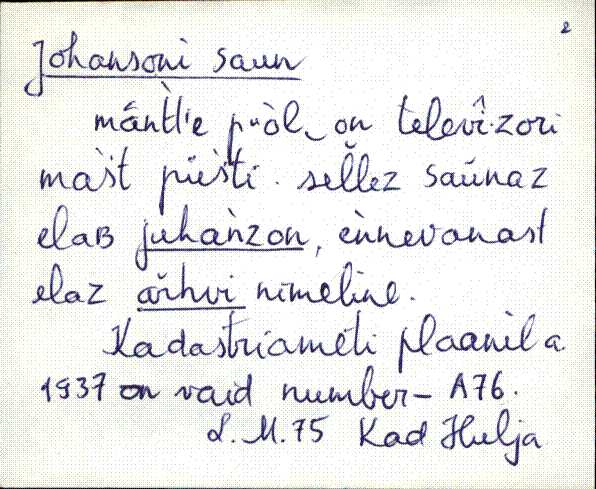 2
Johansoni saun
mànt̀l'e pùòl on televî·zori
màs̀t pìes̀ti. sel̆lez saúnaz
elaʙ juhànzon, ènnevanast
elaz ar̆hvi nimeline.
Kadastriameti plaanil a.
1937 on vaid number – A76.
L. M. 75 Kad Hulja